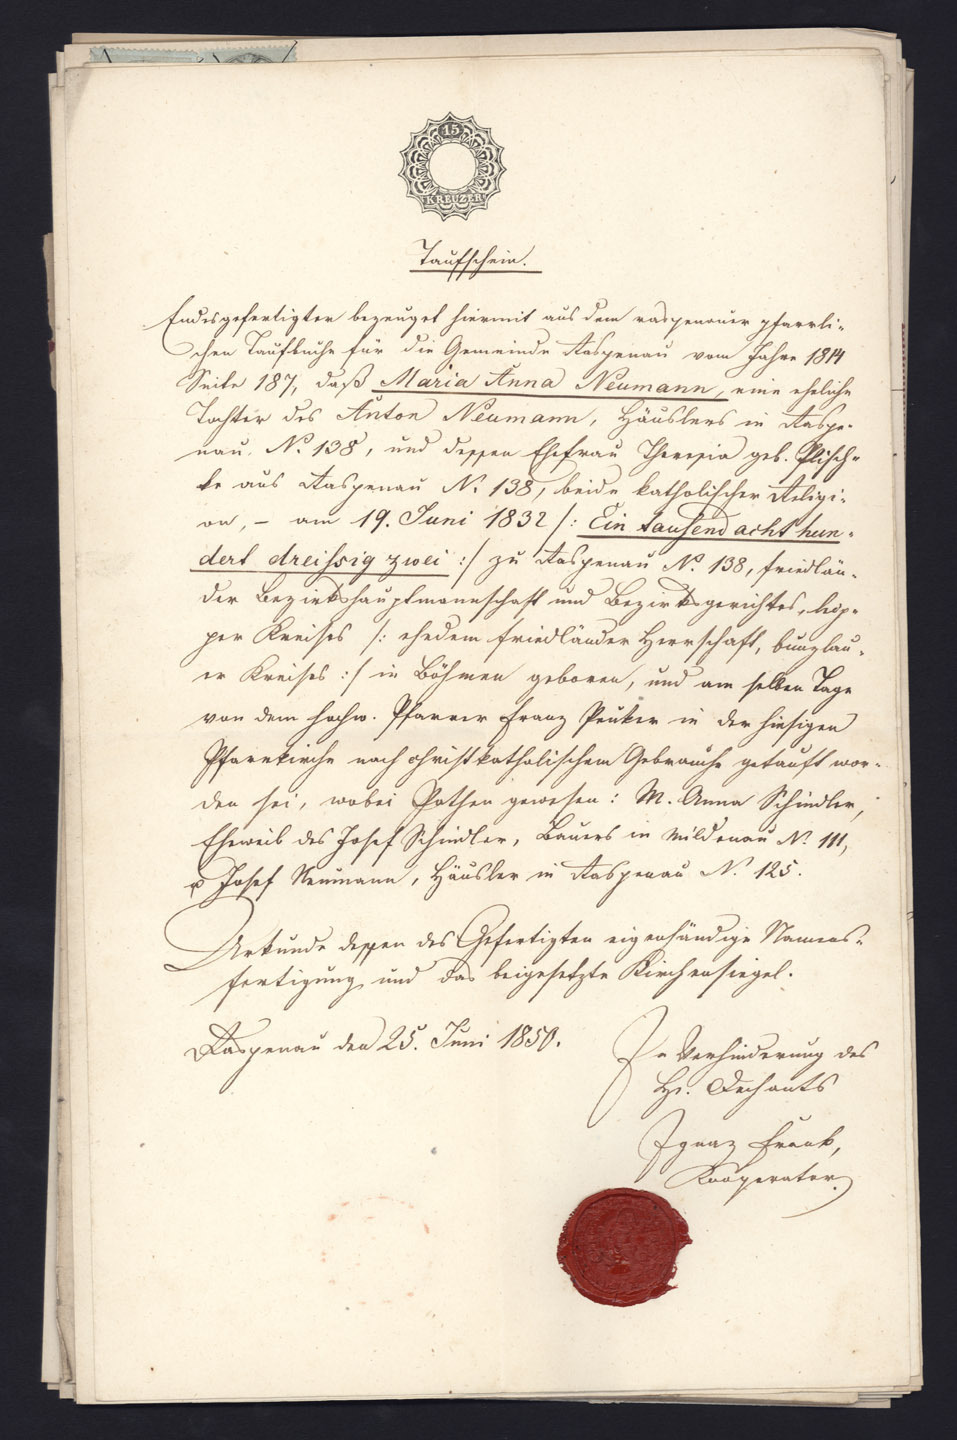 15
KREUZER
Taufschein.
Endesgefertigter bezeuget hiermit aus dem raspenauer pfarrli-
chen Taufbuche für die Gemeinde Raspenau vom Jahre 1814
Seite 187, daß Maria Anna Neumann, eine eheliche
Tochter des Anton Neumann, Häuslers in Raspe-
nau N. 138, und dessen Ehefrau Theresia geb. Plisch-
ke aus Raspenau N. 138, beide katholischer Religi-
on, – am 19. Juni 1832 /: Ein tausend acht hun-
dert dreissig zwei :/ zu Raspenau N. 138, friedlän-
der Bezirkshauptmannschaft und Bezirksgerichtes, leip-
per Kreises /: ehedem friedländer Herrschaft, bunzlau-
er Kreises :/ in Böhmen geboren, und am selben Tage
von dem hochw. Pfarrer Franz Peuker in der hiesigen
Pfarrkirche nach christkatholischem Gebrauche getauft wor-
den sei, wobei Pathen gewesen: M. Anna Schindler,
Eheweib des Josef Schindler, Bauers in Mildenau N. 111,
u Josef Neumann, Häusler in Raspenau N. 125.
Urkunde dessen des Gefertigten eigenhändige Namens-
fertigung und das beigesetzte Kirchensiegel.
Raspenau den 25. Juni 1850.
In Verhinderung des
H. Dechants
Ignaz Frank,
Kooperator.